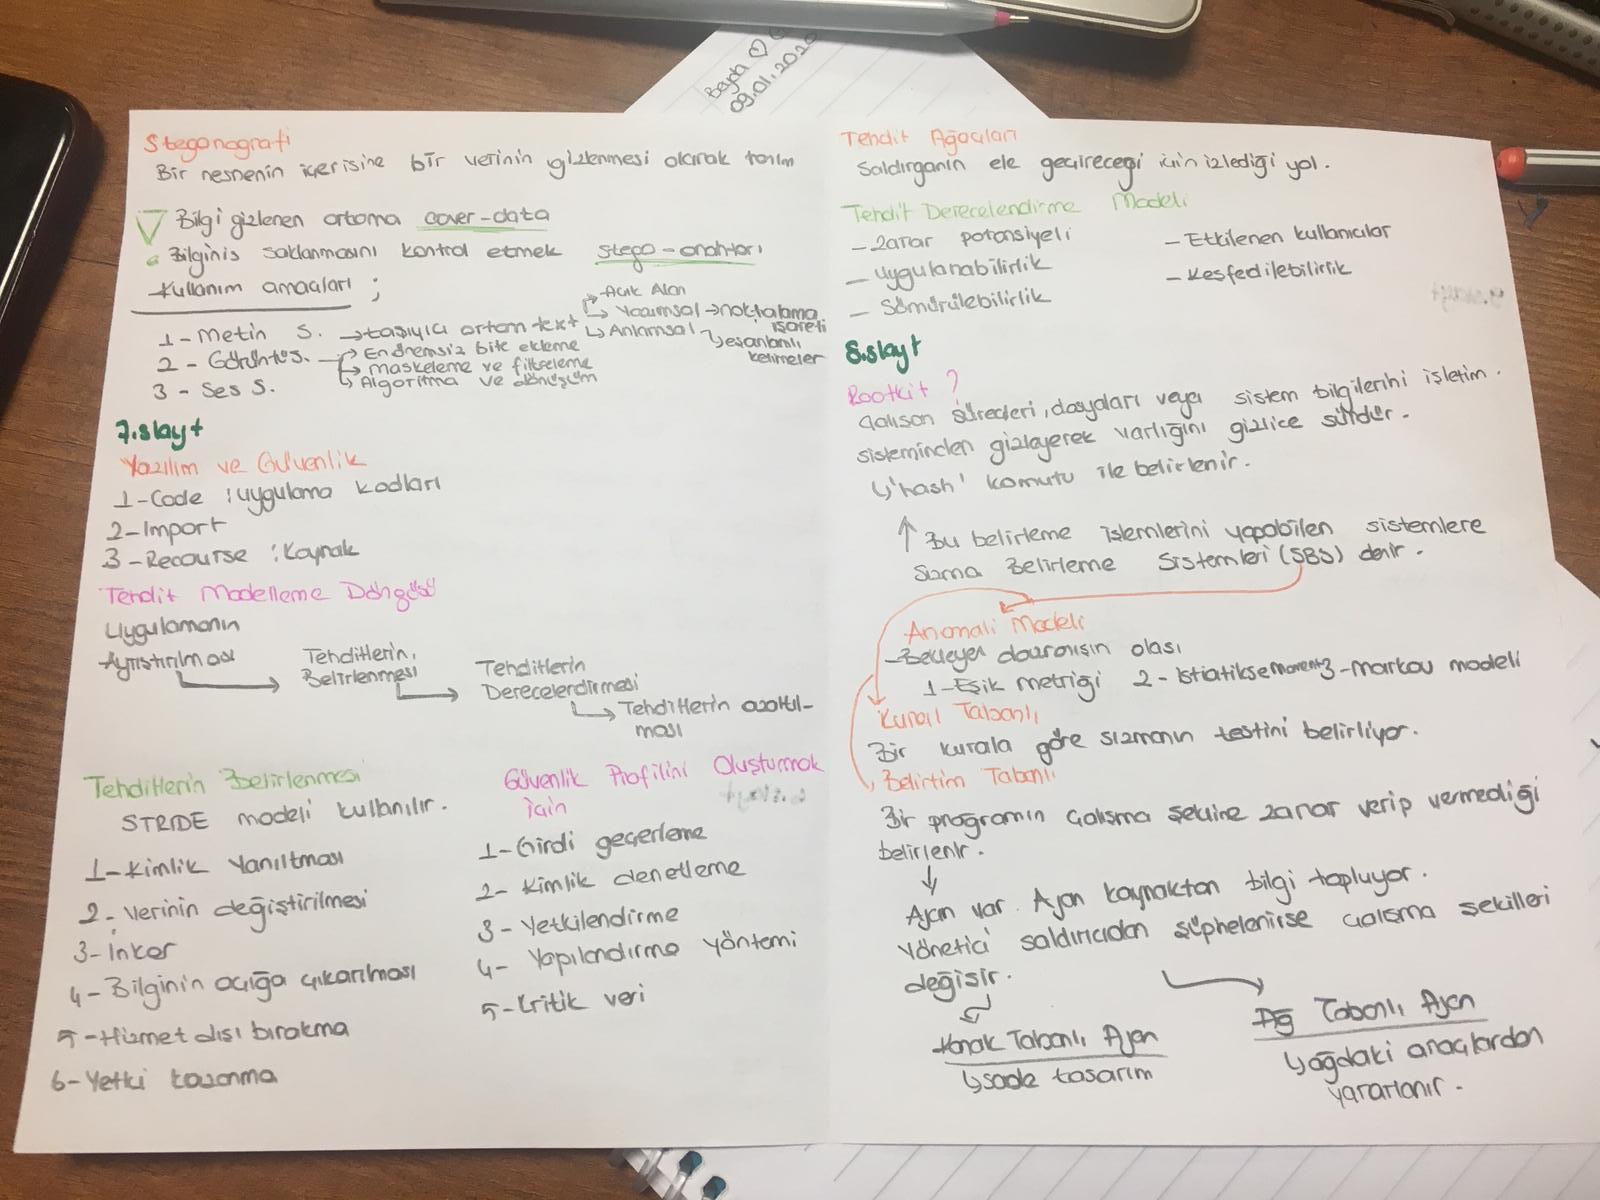 Beyda ♡
09.01.2020
Steganografi
Bir nesnenin içerisine bir verinin gizlenmesi olarak tanım
Bilgi gizlenen ortama cover-data
Bilginin saklanmasını kontrol etmek stego-anahtarı
Kullanım amaçları ;
1- Metin S. → taşıyıcı ortam text
→ Açık Alan
→ Yazımsal → noktalama işareti
↳ Anlamsal ↳ eşanlamlı kelimeler
2 - Görüntü S. → En önemsiz bite ekleme
→ maskeleme ve filtreleme
↳ Algoritma ve dönüşüm
3 - Ses S.
7.slayt
Yazılım ve Güvenlik
1-Code : uygulama kodları
2-Import
3-Recourse : Kaynak
Tehdit Modelleme Döngüsü
Uygulamanın
Ayrıştırılması
Tehditlerin
Belirlenmesi
Tehditlerin
Derecelendirmesi
↳ Tehditlerin azaltıl-
ması
Tehditlerin Belirlenmesi
STRIDE modeli kullanılır.
1-Kimlik Yanıltması
2- Verinin değiştirilmesi
3-İnkar
4-Bilginin açığa çıkarılması
5-Hizmet dışı bırakma
6-Yetki kazanma
Güvenlik Profilini Oluşturmak
için
1-Girdi geçerleme
2- Kimlik denetleme
3- Yetkilendirme
4- Yapılandırma yöntemi
5-Kritik veri
Tehdit Ağaçları
Saldırganın ele geçireceği için izlediği yol.
Tehdit Derecelendirme Modeli
- Zarar potansiyeli
- Uygulanabilirlik
- Sömürülebilirlik
- Etkilenen kullanıcılar
- Keşfedilebilirlik
8.slayt
Rootkit ?
Çalışan süreçleri, dosyaları veya sistem bilgilerini işletim
sisteminden gizleyerek varlığını gizlice sürdür.
↳ 'hash' komutu ile belirlenir.
↑ Bu belirleme işlemlerini yapabilen sistemlere
Sızma Belirleme Sistemleri (SBS) denir.
Anomali Modeli
-Bekleyen davranışın olası
1-Eşik metriği 2- istiatiksemoment 3-Markov modeli
Kural Tabanlı
Bir kurala göre sızmanın testini belirliyor.
Belirtim Tabanlı
Bir programın çalışma şekline zarar verip vermediği
belirlenir.
↓
Ajan var. Ajan kaynaktan bilgi topluyor.
Yönetici saldırıcıdan şüphelenirse çalışma şekilleri
değişir.
Konak Tabanlı Ajan
↳ sade tasarım
Ağ Tabanlı Ajan
↳ ağdaki araçlardan
yararlanır.